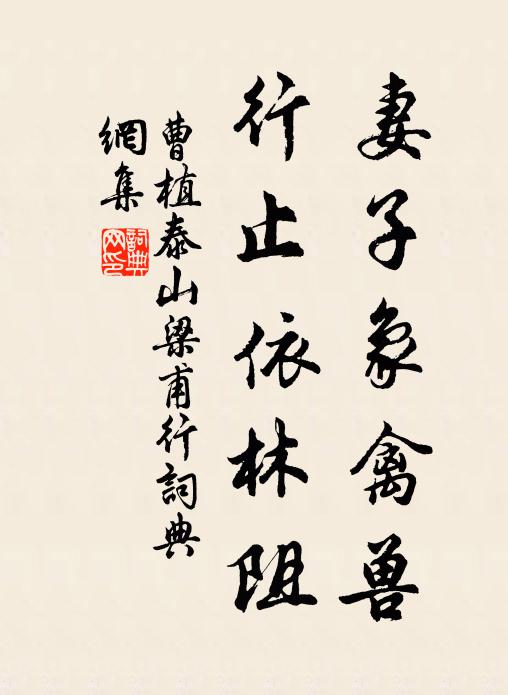 妻子象禽兽
行止依林阻
曹植泰山梁甫行詞典
網集
詞典
网印